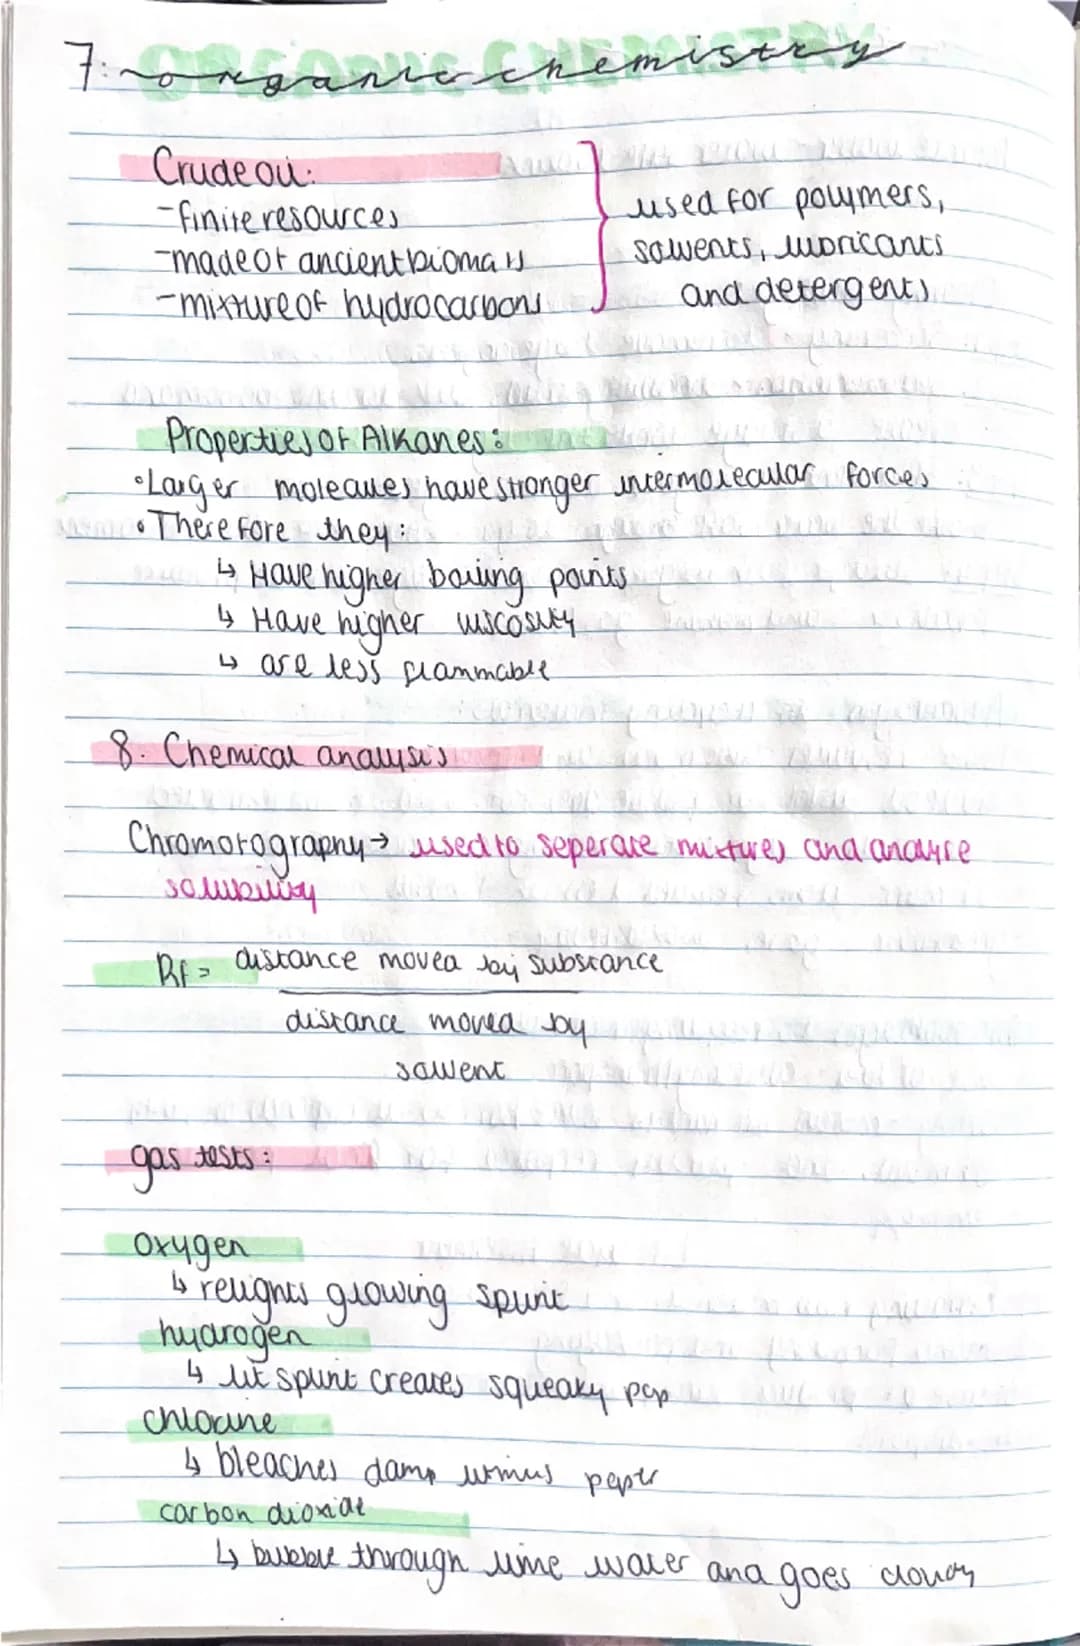 7. organic chemistry
ORGANIC CHEMISTRY
Crude oil:
-finite resources
-made of ancient biomass
-mixture of hydrocarbons
used for polymers,
solvents, lubricants
and detergents
Properties of Alkanes:
•Larger molecules have stronger intermolecular forces
•Therefore they:
↳ Have higher boiling points
↳ Have higher viscosity
↳ are less flammable
8. Chemical analysis
Chromotography→ used to seperate mixtures and analyse
solubility
Rf = distance moved by substance
distance moved by
solvent
gas tests:
oxygen
↳ relights glowing splint
hydrogen
↳ lit splint creates squeaky pop
chlorine
↳ bleaches damp litmus paper
carbon dioxide
↳ bubble through lime water and goes cloudy